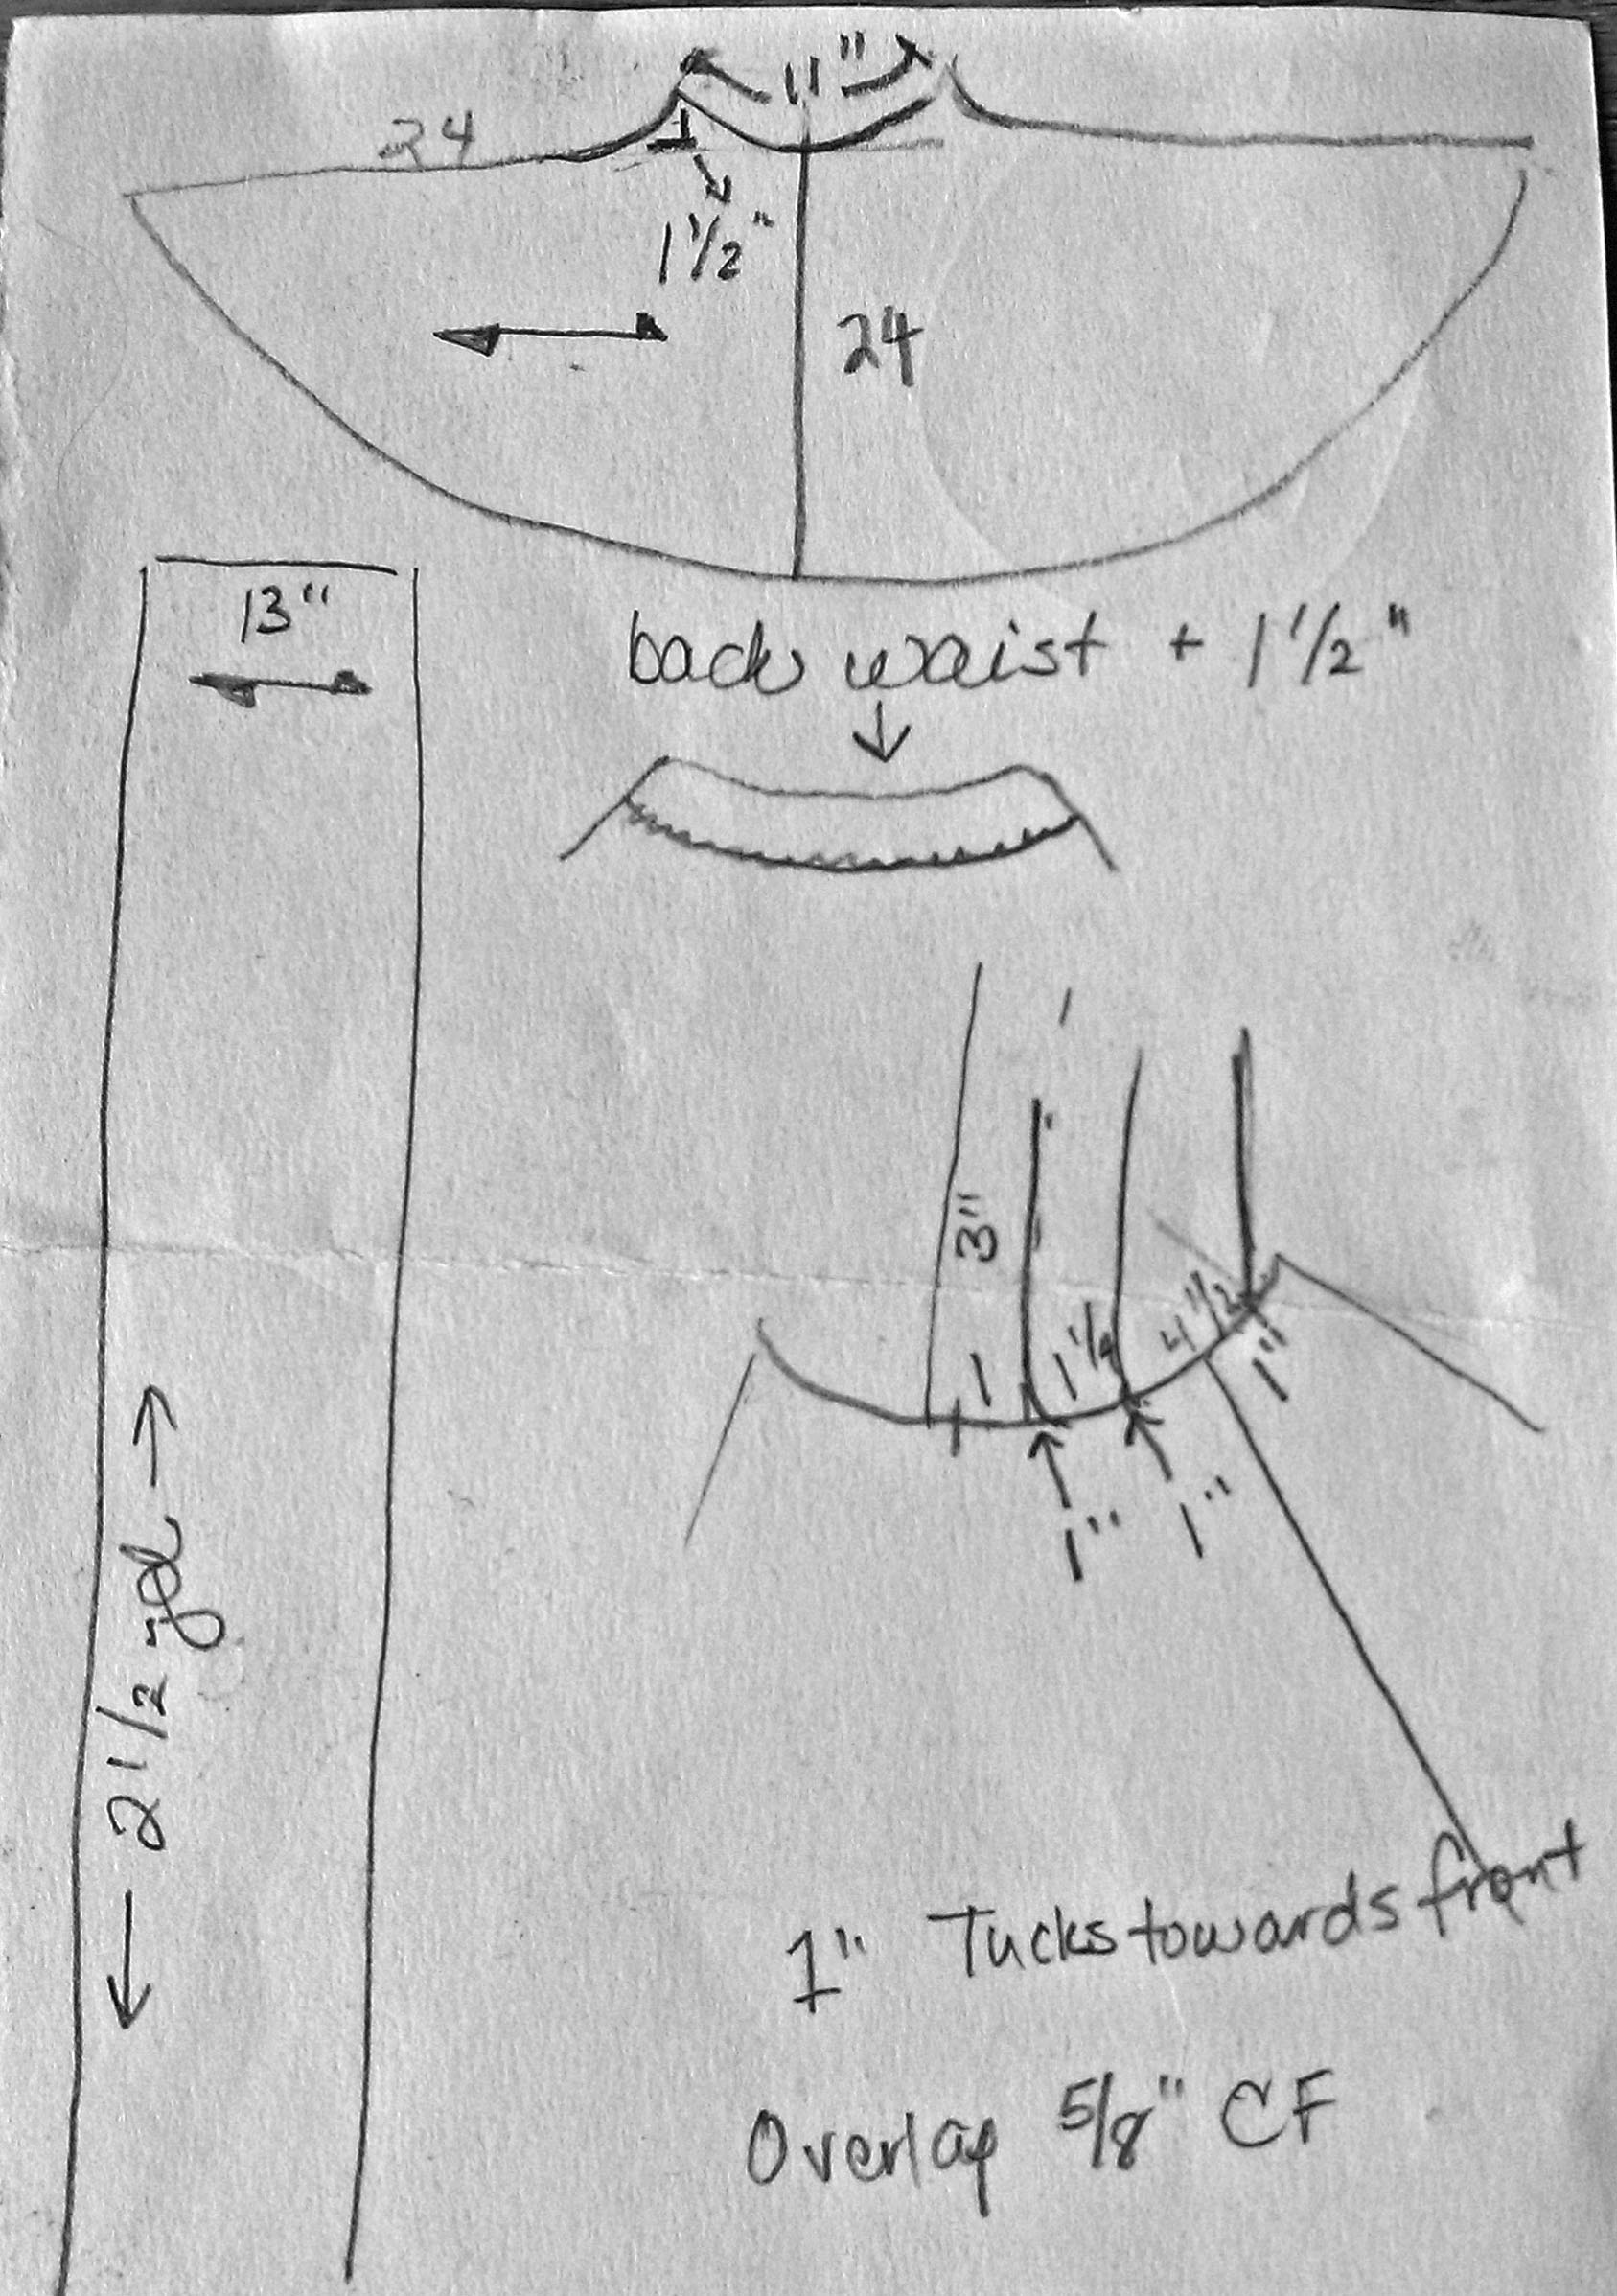 11"
24
1
1 1/2"
24
13"
back waist + 1 1/2"
3"
1
4 1/2
1"
1"
1"
2 1/2 yd
1" Tucks towards front
Overlap 5/8" CF